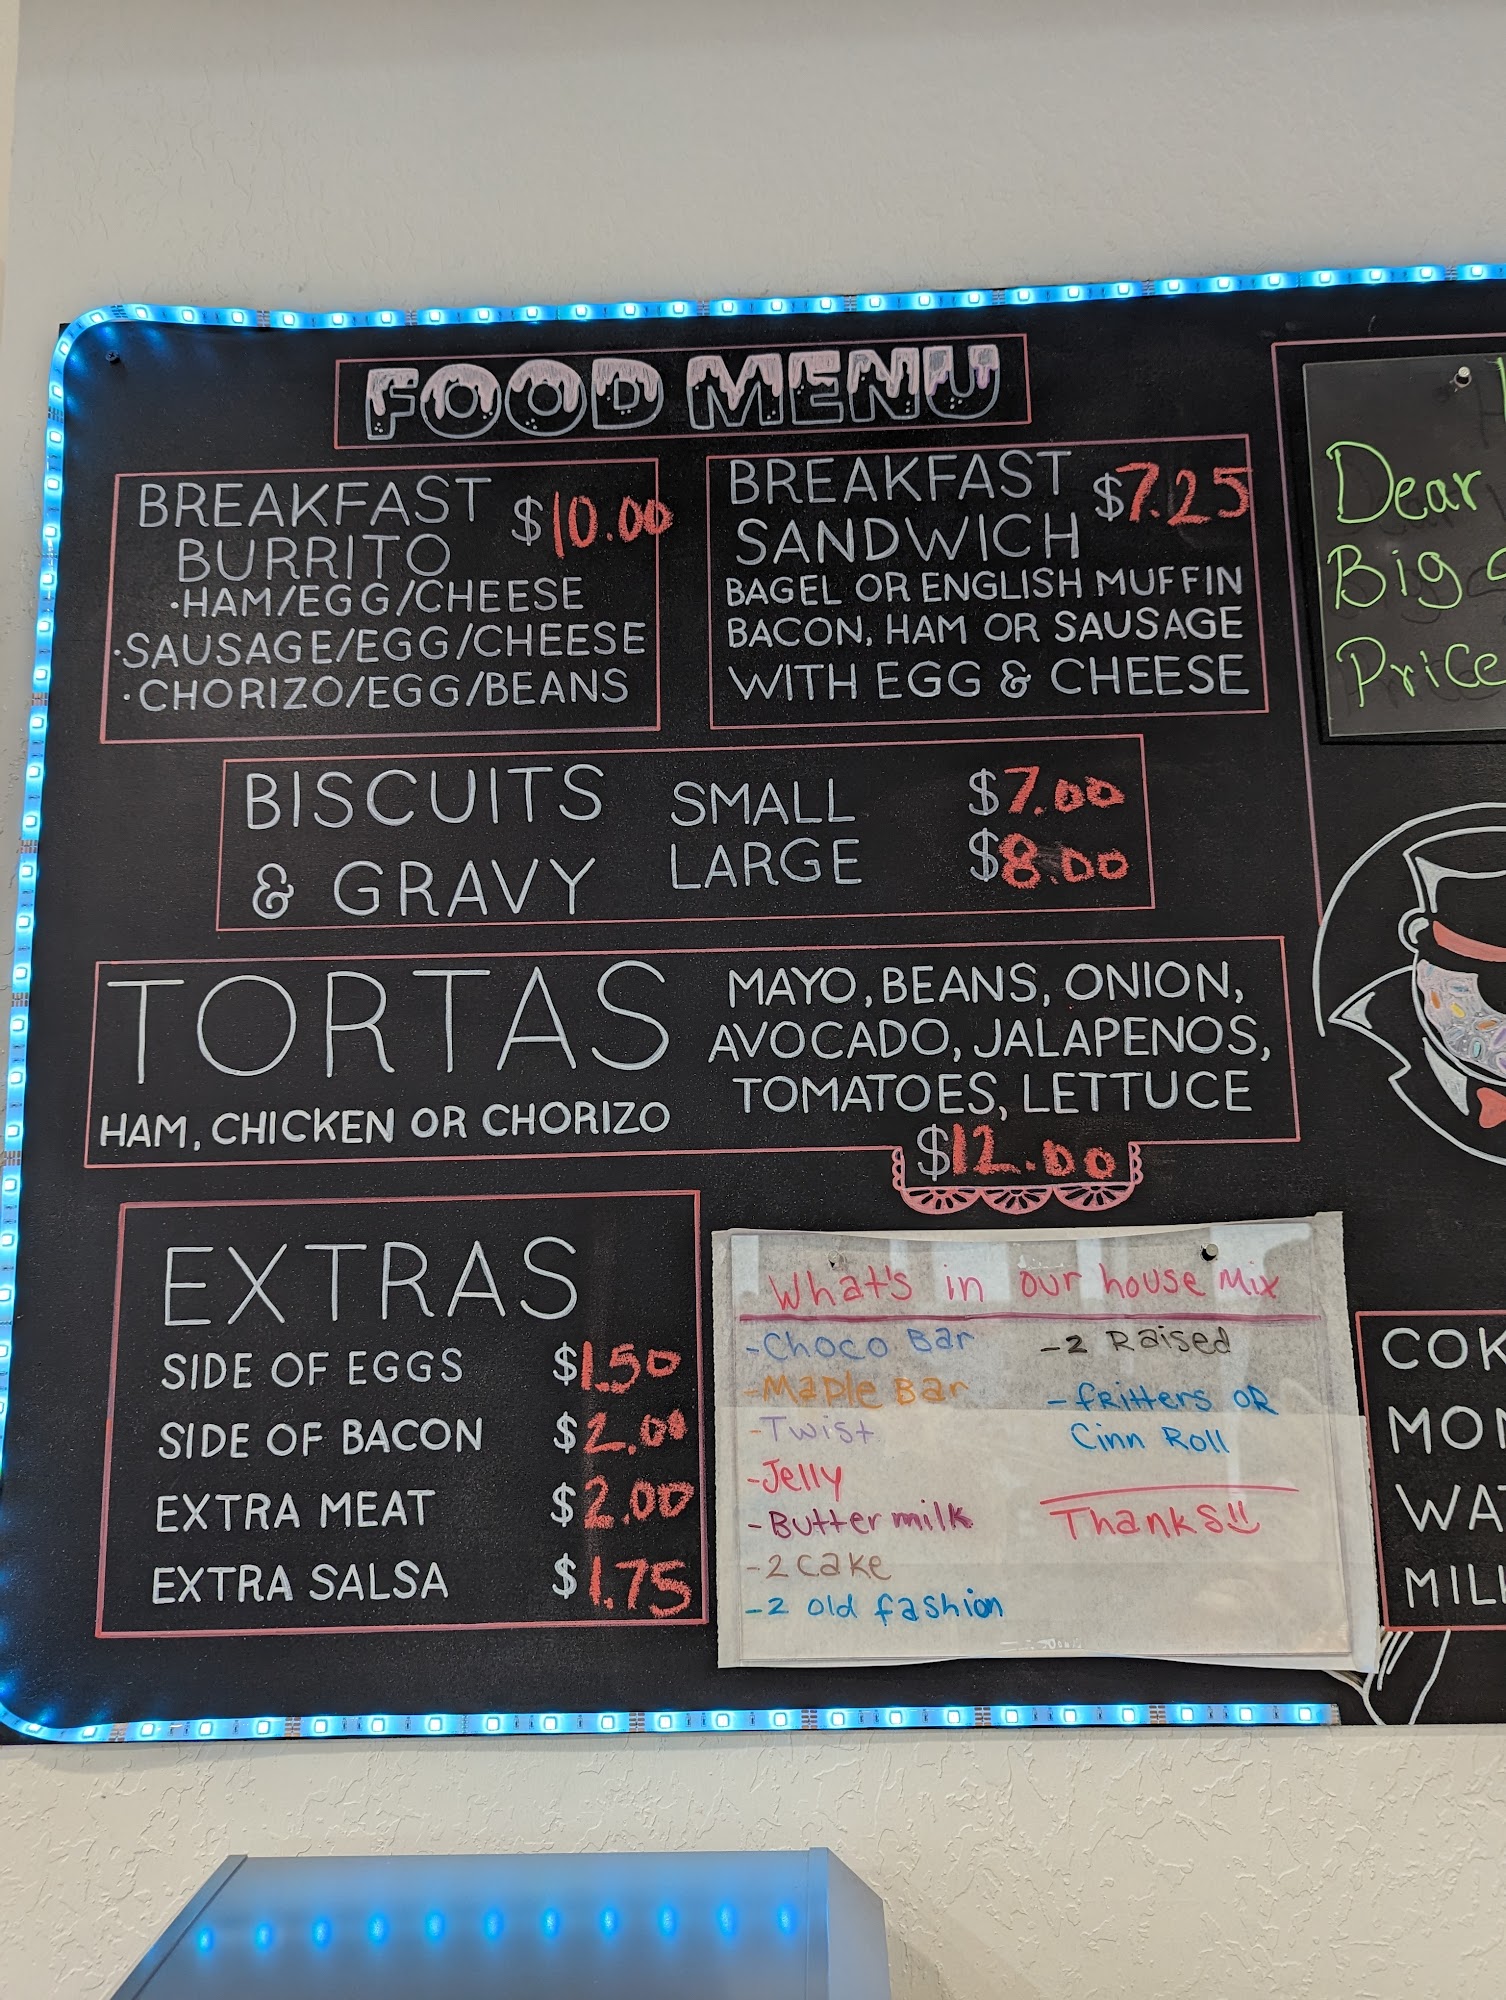 FOOD MENU
BREAKFAST
BURRITO
$10.00
·HAM/EGG/CHEESE
·SAUSAGE/EGG/CHEESE
·CHORIZO/EGG/BEANS
BREAKFAST
SANDWICH
$7.25
BAGEL OR ENGLISH MUFFIN
BACON, HAM OR SAUSAGE
WITH EGG & CHEESE
BISCUITS
& GRAVY
SMALL $7.00
LARGE $8.00
TORTAS
HAM, CHICKEN OR CHORIZO
MAYO, BEANS, ONION,
AVOCADO, JALAPENOS,
TOMATOES, LETTUCE
$12.00
EXTRAS
SIDE OF EGGS $1.50
SIDE OF BACON $2.00
EXTRA MEAT $2.00
EXTRA SALSA $1.75
What's in our house Mix
-Choco Bar
-Maple Bar
-Twist
-Jelly
-Buttermilk
-2 cake
-2 old fashion
-2 Raised
-fritters OR
Cinn Roll
Thanks!!
Dear
Big
Price